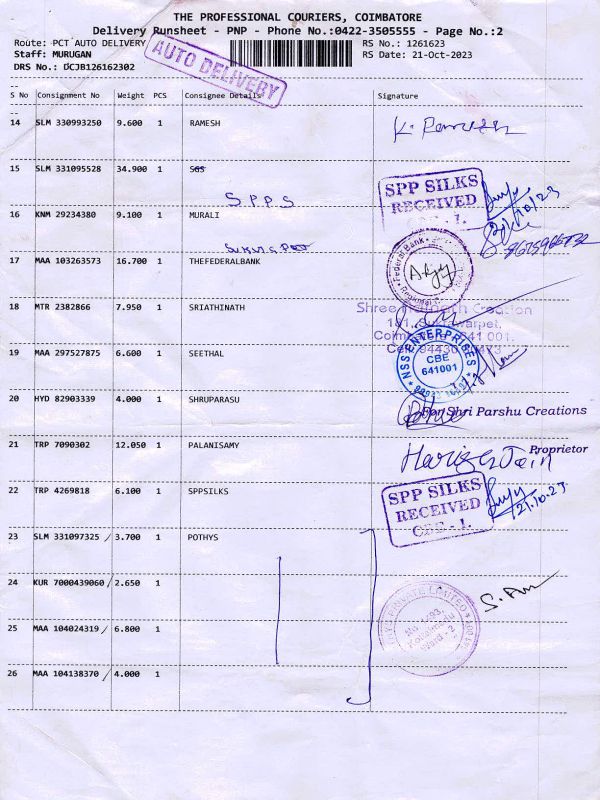 THE PROFESSIONAL COURIERS, COIMBATORE
Delivery Runsheet - PNP - Phone No.:0422-3505555 - Page No.:2
Route: PCT AUTO DELIVERY RS No.: 1261623
Staff: MURUGAN RS Date: 21-Oct-2023
DRS No.: DCJB126162302
AUTO DELIVERY
S No Consignment No Weight PCS Consignee Details Signature
14 SLM 330993250 9.600 1 RAMESH K. Ramesh
15 SLM 331095528 34.900 1 SGS
SPPS
SPP SILKS
RECEIVED
CBE - 1.
21/10/23
16 KNM 29234380 9.100 1 MURALI
17 MAA 103263573 16.700 1 THEFEDERALBANK
Federal Bank
18 MTR 2382866 7.950 1 SRIATHINATH
Shree Creation
641 001.
19 MAA 297527875 6.600 1 SEETHAL
NSS ENTERPRISES
CBE
641001
20 HYD 82903339 4.000 1 SHRUPARASU
For Shri Parshu Creations
21 TRP 7090302 12.050 1 PALANISAMY
Harish Jain
Proprietor
22 TRP 4269818 6.100 1 SPPSILKS
SPP SILKS
RECEIVED
CBE - 1.
21.10.23
23 SLM 331097325 / 3.700 1 POTHYS
24 KUR 7000439060 / 2.650 1
S.
25 MAA 104024319 / 6.800 1
PRIVATE LIMITED
26 MAA 104138370 / 4.000 1